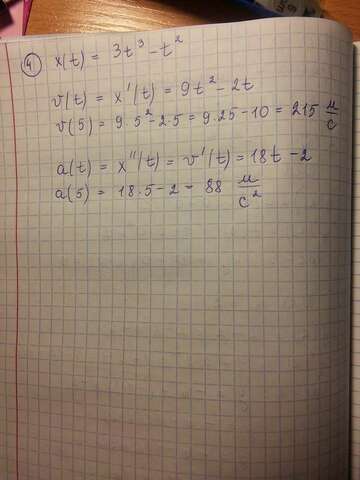 ④ x(t) = 3t³ - t²
v(t) = x'(t) = 9t² - 2t
v(5) = 9·5² - 2·5 = 9·25 - 10 = 215 м/с
a(t) = x''(t) = v'(t) = 18t - 2
a(5) = 18·5 - 2 = 88 м/с²